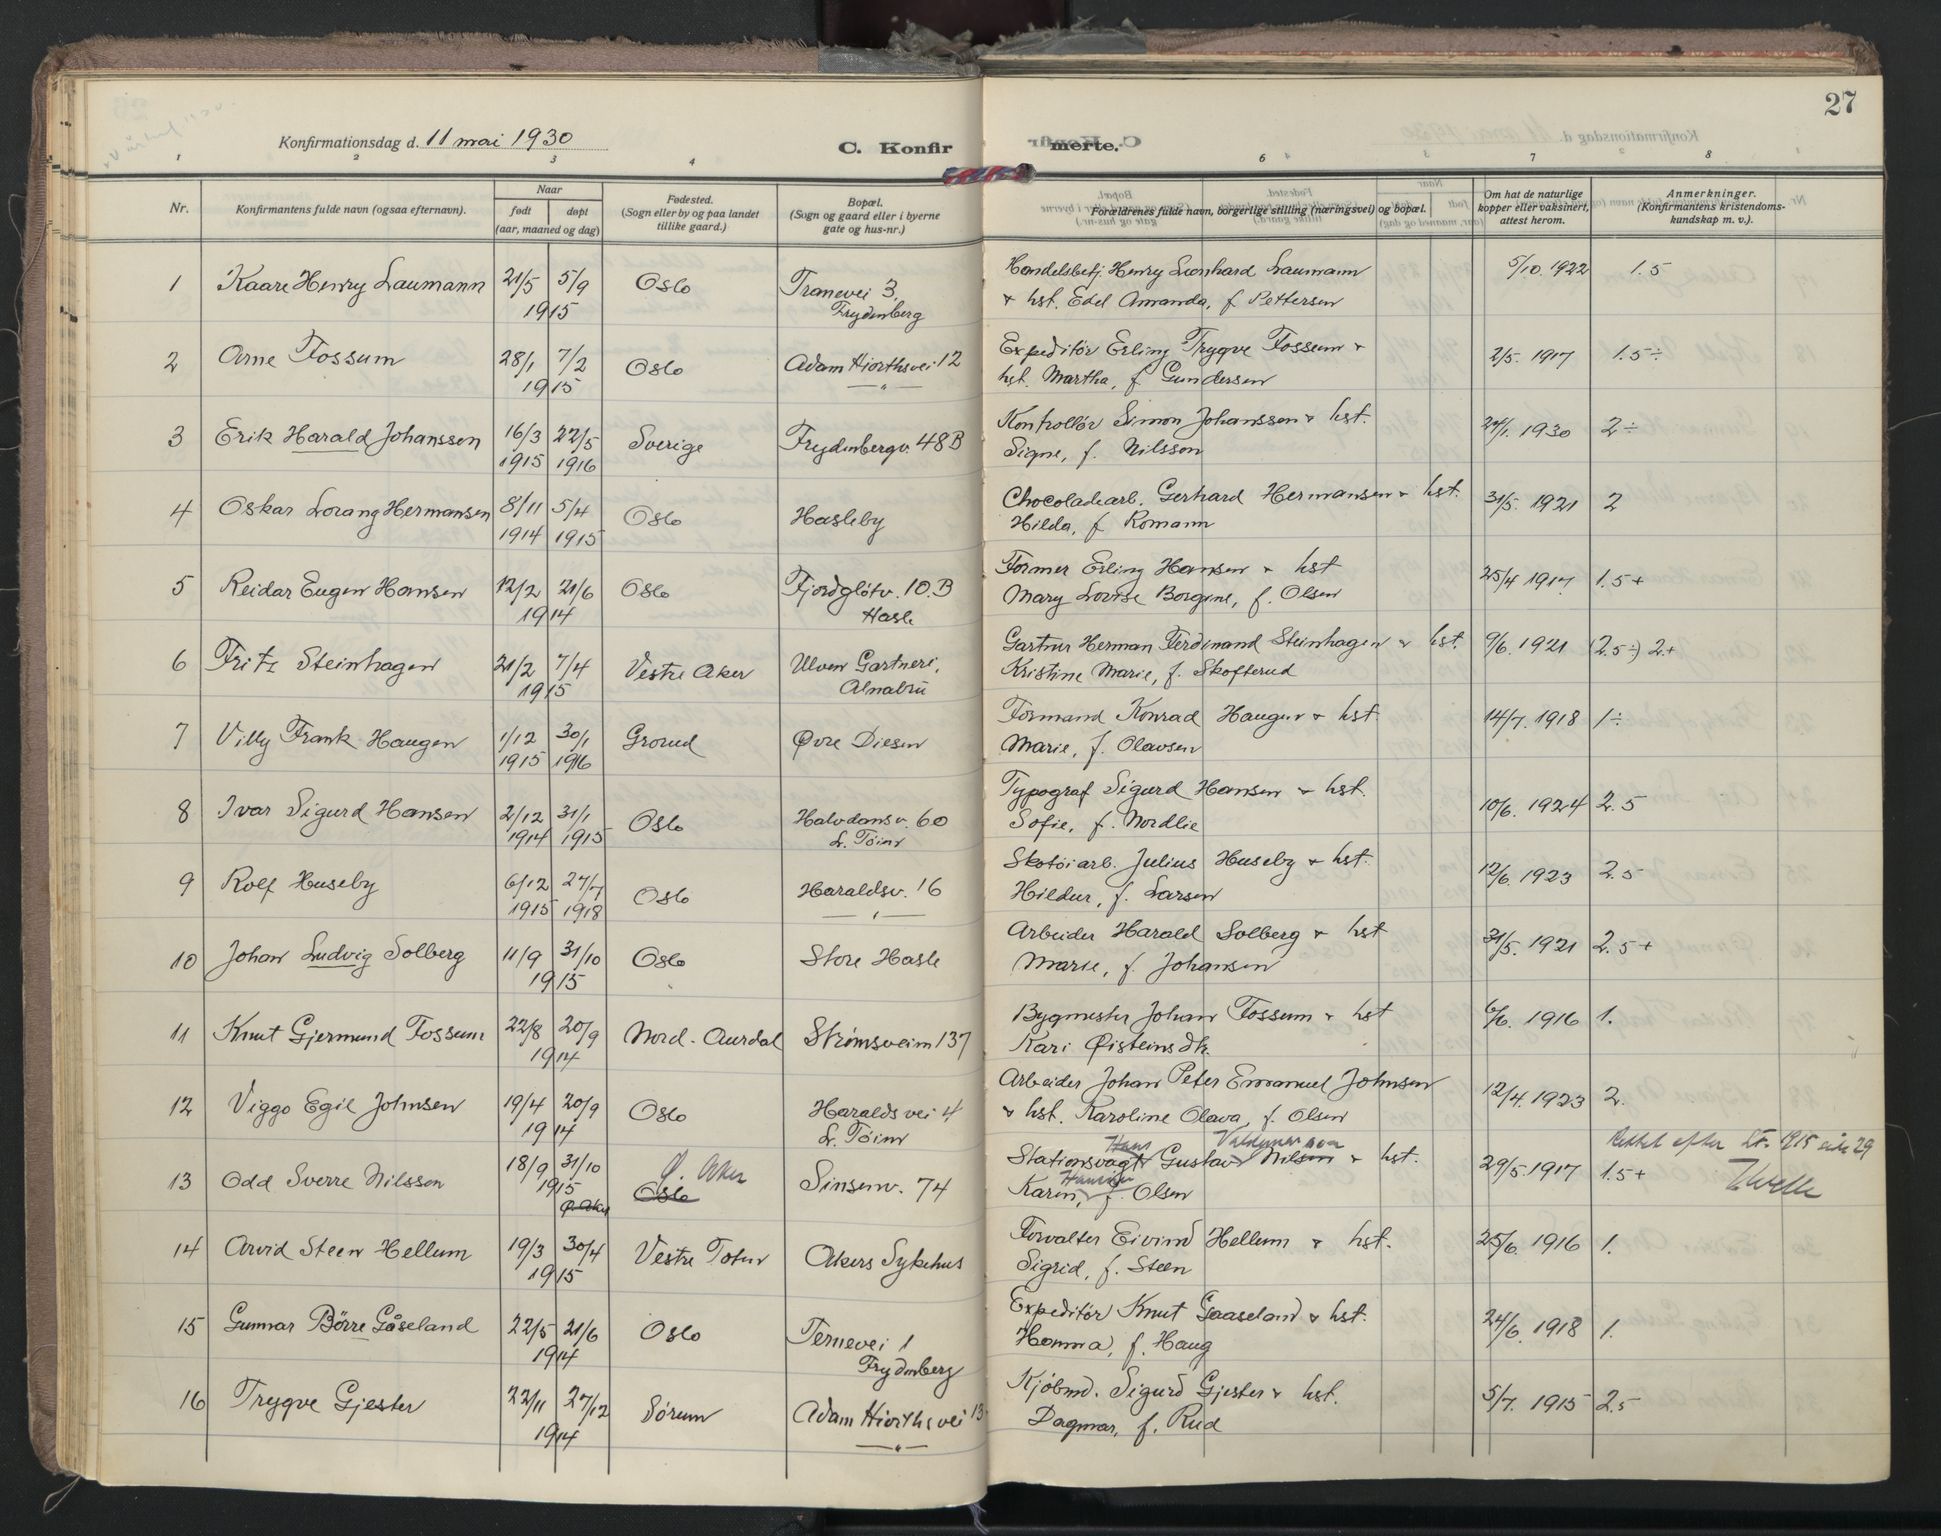 27
Konfirmationsdag d. 11 mai 1930
C. Konfirmerte.
1 2 3 4 6 7 8
Nr. Konfirmantens fulde navn (ogsaa efternavn). Naar født døpt (aar, maaned og dag) Fødested. (Sogn eller by og paa landet tillike gaard.) Bopæl. (Sogn og gaard eller i byerne gate og hus-nr.) Forældrenes fulde navn, borgerlige stilling (næringsvei) og bopæl. Om hat de naturlige kopper eller vaksinert, attest herom. Anmerkninger. (Konfirmantens kristendoms-kundskap m. v.).
1 Kaare Henry Laumann 21/5 5/9 Oslo Tranevei 3, Handelsbetj. Henry Leonhard Laumann 5/10. 1922 1.5
1915 Frydenberg & hst. Edel Amanda, f. Pettersen
2 Arne Fossum 28/1 7/2 Oslo Adam Hjorthsvei 12 Expeditör Erling Trygve Fossum & 2/5. 1917 1.5÷
1915 — " — hst. Martha, f. Gundersen
3 Erik Harald Johanssen 16/3 22/5 Sverige Frydenbergv. 48B Kontrollör Simon Johanssen & hst. 1930 2÷
1915 1916 Signe, f. Nilsson
4 Oskar Lorang Hermansen 8/11 5/4 Oslo Hasleby Chocoladearb. Gerhard Hermansen & hst. 31/5. 1921 2
1914 1915 Hilda, f. Romann
5 Reidar Eugen Hansen 12/2 21/6 Oslo Fjordgløtv. 10.B Former Erling Hansen & hst 25/4 1917 1.5+
1914 Hasle Mary Lovise Borgine, f. Olsen
6 Fritz Steinhagen 21/2 7/4 Vestre Aker Ulven Gartneri, Gartner Herman Ferdinand Steinhagen & hst. 9/6. 1921 (2.5÷) 2+
1915 Alnabru Kristine Marie, f. Skofterud
7 Villy Frank Haugen 1/12 30/1 Grorud Øvre Diesen Formand Konrad Haugen & hst. 14/7. 1918 1÷
1915 1916 Marie, f. Olavsen
8 Ivar Sigurd Hansen 2/12 31/1 Oslo Halvdansv. 60 Typograf Sigurd Hansen & hst. 10/6. 1924 2.5
1914 1915 L. Töien Sofie, f. Nordlie
9 Rolf Huseby 6/12 27/7 Oslo Haraldsv. 16 Skotöiarb. Julius Huseby & hst. 12/6. 1923 2.5
1915 1918 — " — Hildur, f. Larsen
10 Johan Ludvig Solberg 11/9 31/10 Oslo Store Hasle Arbeider Harald Solberg & hst 31/5. 1921 2.5+
1915 Marie, f. Johansen
11 Knut Gjermund Fossum 22/8 20/9 Nord-Aurdal Strömsveien 137 Bygmester Johan Fossum & hst 6/6. 1916 1.
1914 Kari Øisteinsdt.
12 Viggo Egil Johnsen 19/4 20/9 Oslo Haraldsvei 4 Arbeider Johan Peter Emanuel Johnsen 12/4. 1923 2.
1914 L. Töien & hst. Karoline Olava, f. Olsen
Hans Valdemar Rettet efter 1915 side 29
13 Odd Sverre Nilssen 18/9 31/10 Ø. Aker Oslo Sinsenv. 74 Stationsvagt Gustav Nilsen & hst. 29/5. 1917 1.5+
1915 Ø. Aker Karen, f. Olsen
14 Arvid Steen Hellum 19/3 30/4 Vestre Toten Akers Sykehus Forvalter Eivind Hellum & hst. 25/6. 1916 1.
1915 Sigrid, f. Steen
15 Gunnar Börre Gåseland 22/5 21/6 Oslo Ternevei 1 Expeditör Knut Gaaseland & hst. 24/6. 1918 1.
1914 Frydenberg Hanna, f. Haug
16 Trygve Gjester 22/11 27/12 Sörum Adam Hiorthsvei 13 Kjöbmd. Sigurd Gjester & hst. 5/7. 1915 2.5
1914 — " — Dagmar, f. Rud